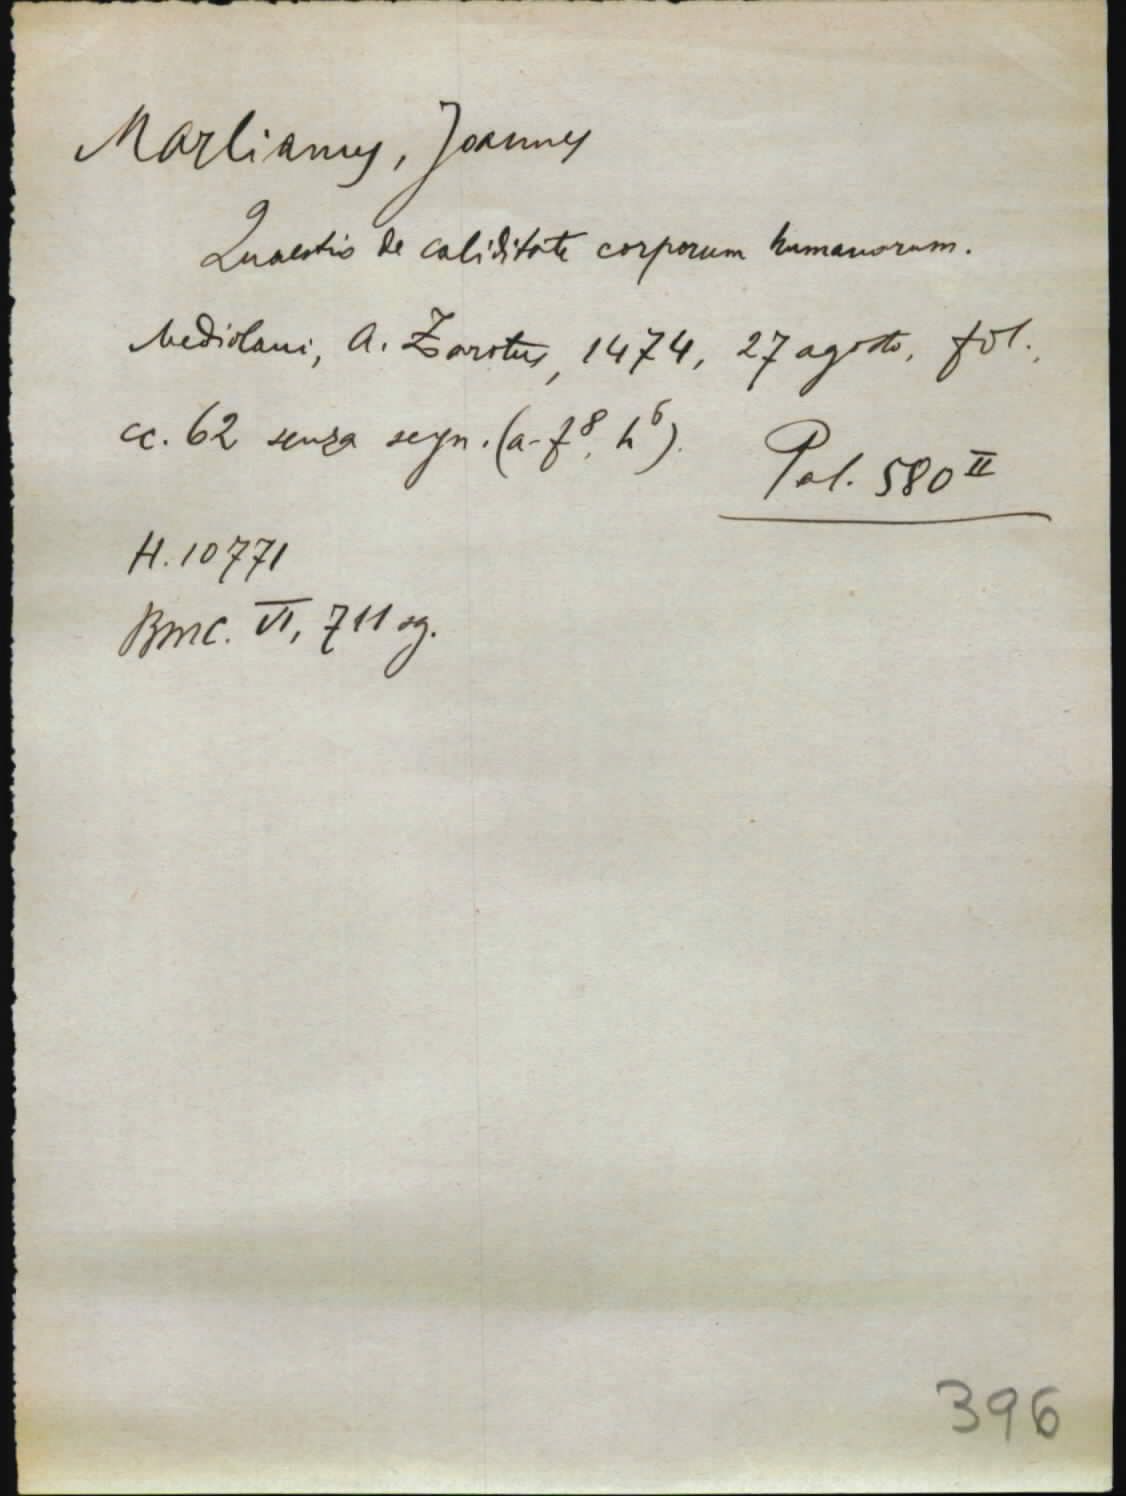 Marlianus, Joannes
Quaestio de caliditate corporum humanorum.
Mediolani, A. Zarotus, 1474, 27 agosto, fol.,
cc. 62 senza segn. (a-f⁸, h⁶).
Pal. 580 II
H. 10771
BMC. VI, 711 sg.
396